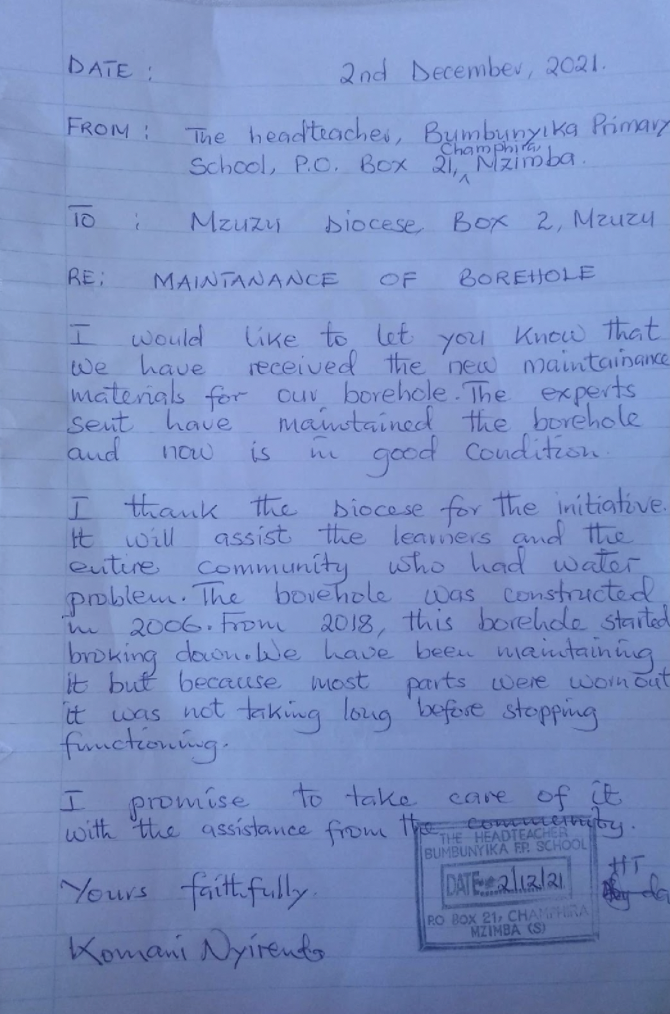 DATE : 2nd December, 2021.
FROM : The headteacher, Bumbunyika Primary
School, P.O. Box 21, Champhira, Mzimba.
TO : Mzuzu Diocese, Box 2, Mzuzu
RE: MAINTANANCE OF BOREHOLE
I would like to let you know that
we have received the new maintainance
materials for our borehole. The experts
sent have maintained the borehole
and now is in good condition.
I thank the Diocese for the initiative.
It will assist the learners and the
entire community who had water
problem. The borehole was constructed
in 2006. From 2018, this borehole started
broking down. We have been maintaining
it but because most parts were wornout
it was not taking long before stopping
functioning.
I promise to take care of it
with the assistance from the community.
THE HEADTEACHER
BUMBUNYIKA F.P. SCHOOL
DATE 2/12/21
P.O BOX 21, CHAMPHIRA
MZIMBA (S)
HT
Yours faithfully.
Komani Nyirenda